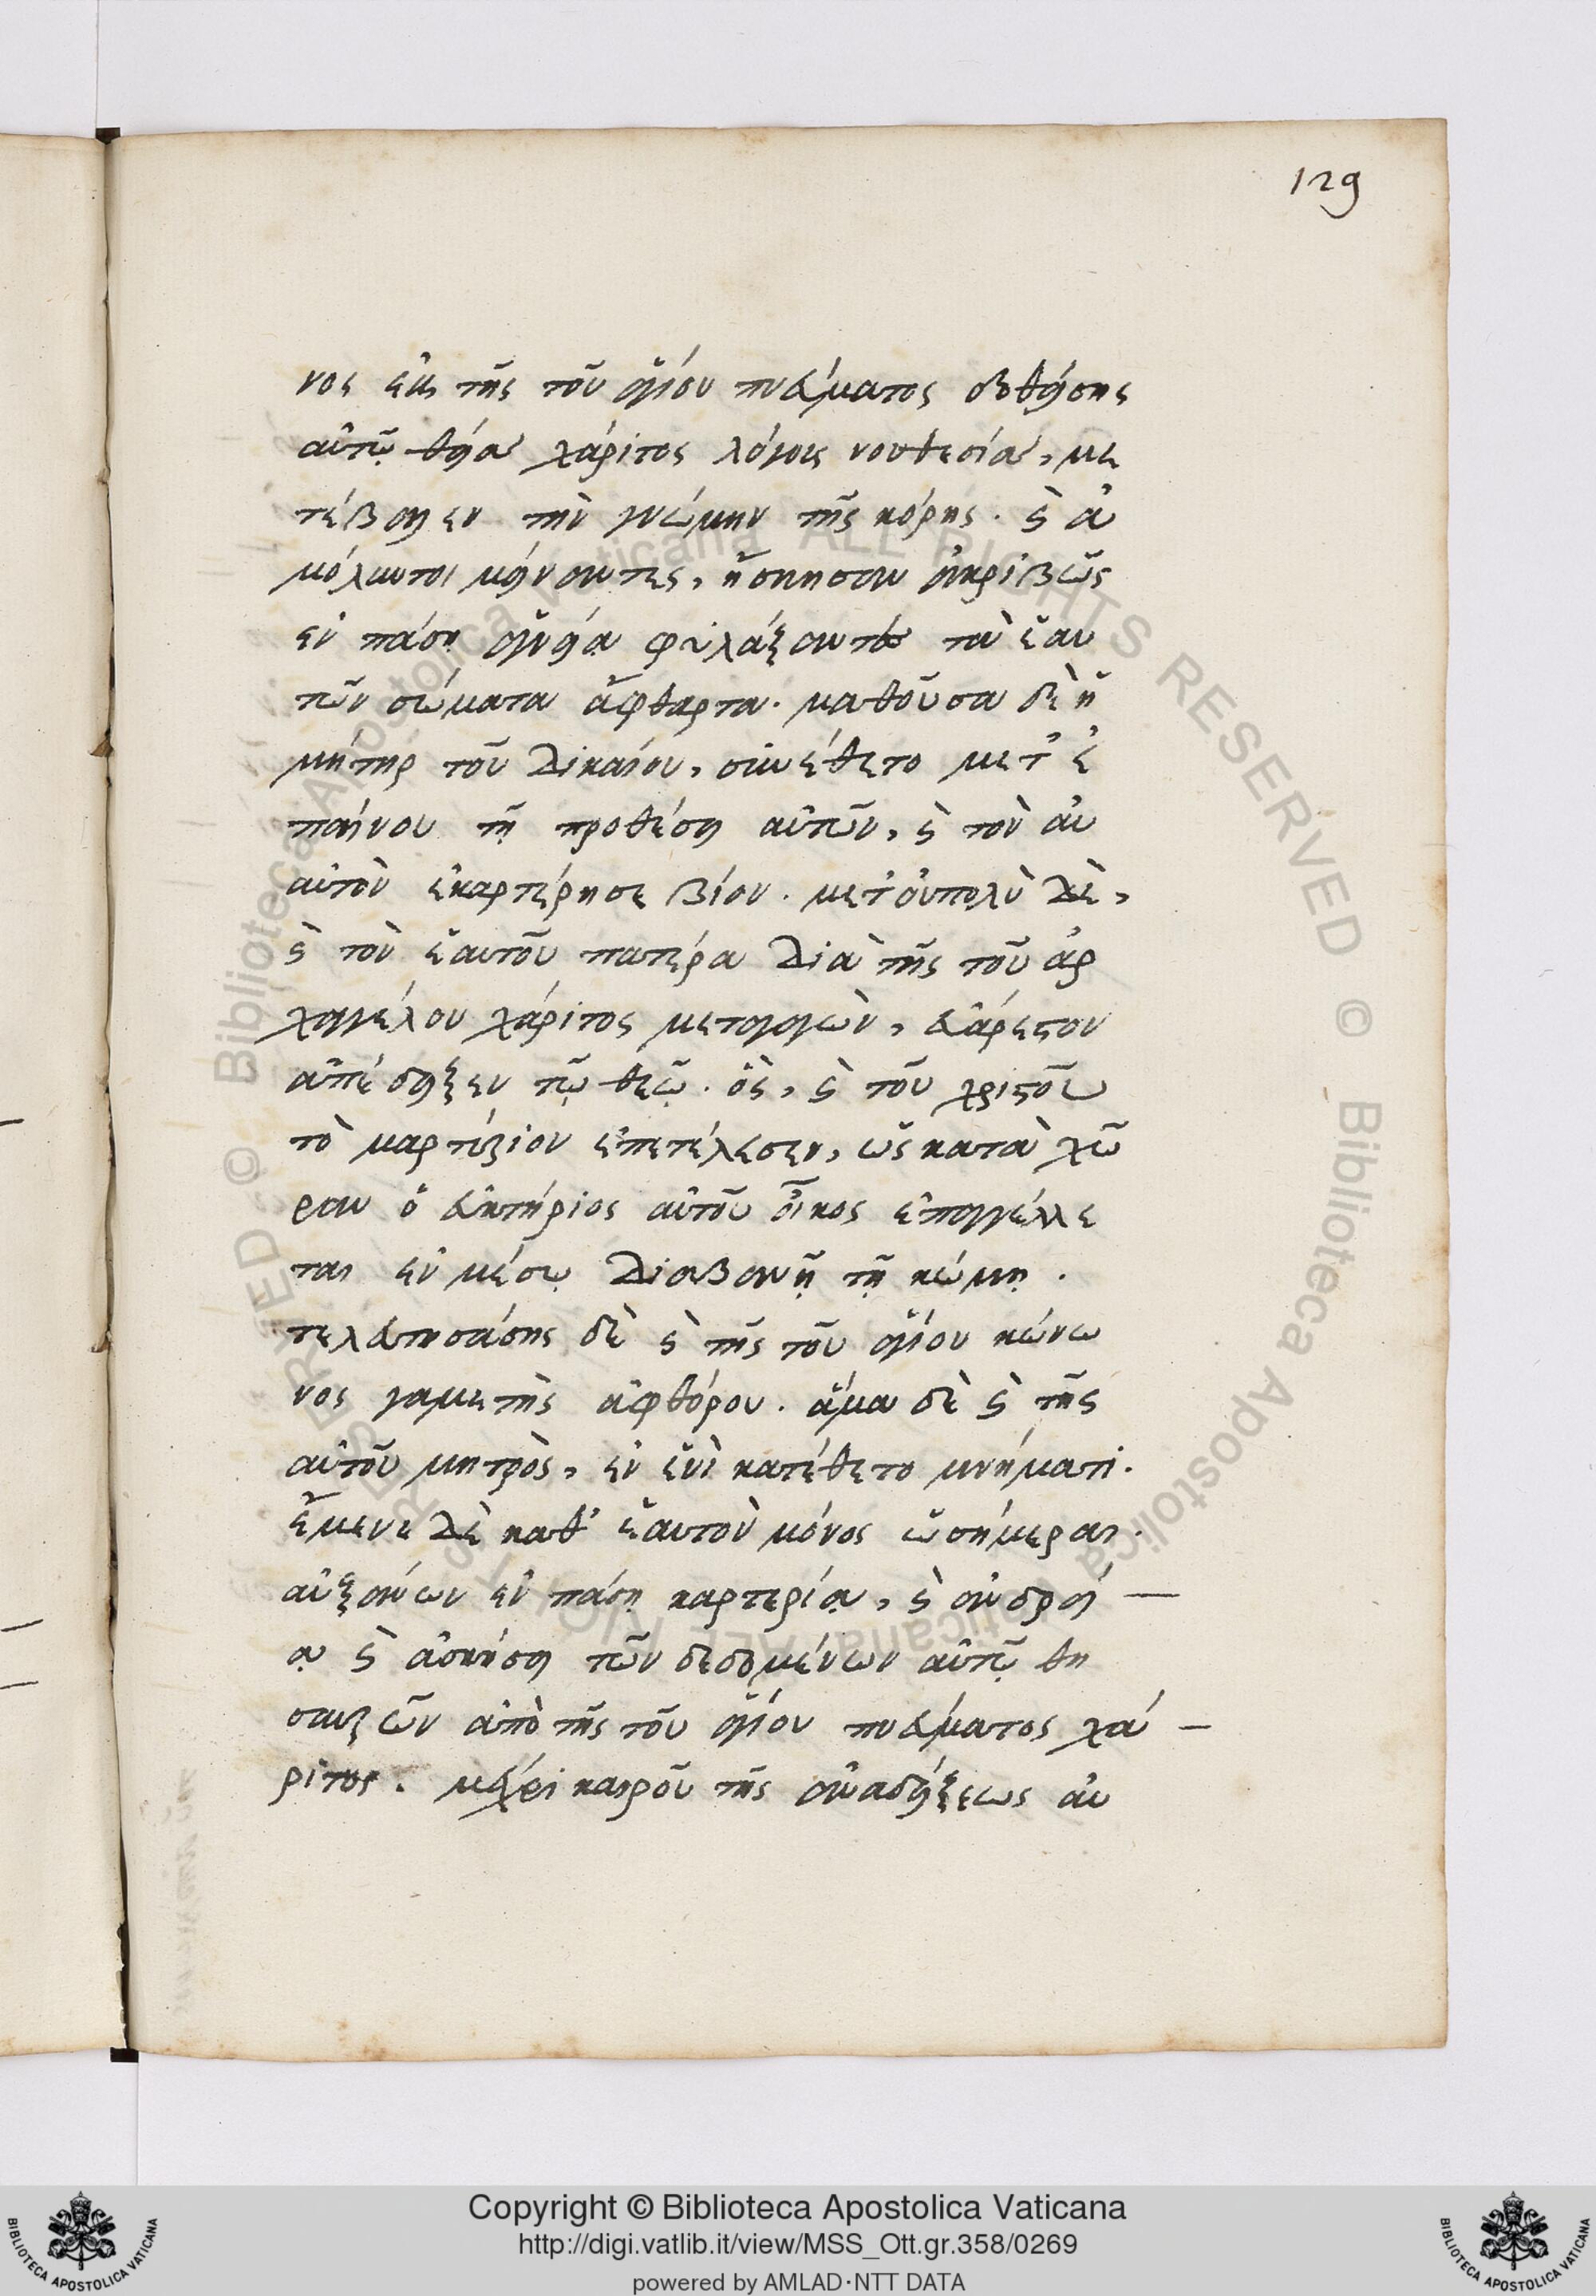 129
νος ἐκ τῆς τοῦ ἁγίου πνεύματος δοθείσης
αὐτῷ θείας χάριτος λόγοις νουθεσίας, με
τέβαλεν τὴν γνώμην τῆς κόρης. καὶ ἀ
μόλυντοι μείναντες, ἤσκησαν ἀκριβῶς
ἐν πάσῃ ἁγνείᾳ φυλάξαντες τὰ ἑαυ
τῶν σώματα ἄφθαρτα. μαθοῦσα δὲ ἡ
μήτηρ τοῦ δικαίου, συνέθετο μετ' ἐ
παίνου τῇ προθέσει αὐτῶν, καὶ τὸν αὐ
αὐτὸν ἐκαρτέρησε βίον. μετ' οὐπολὺ δὲ,
καὶ τὸν ἑαυτοῦ πατέρα διὰ τῆς τοῦ ἀρ
χαγγέλου χάριτος μεταγαγὼν, εὐάρεστον
ἀπέδειξεν τῷ θεῷ. ὃς, καὶ τοῦ χριστοῦ
τὸ μαρτύριον ἐπετέλεσεν, ὡς κατὰ χώ
ραν ὁ εὐκτήριος αὐτοῦ οἶκος ἐπαγγέλλε
ται ἐν μέσῳ Διαβανῇ τῇ κώμῃ.
τελευτησάσης δὲ καὶ τῆς τοῦ ἁγίου κόνω
νος γαμετῆς ἀφθόρου. ἅμα δὲ καὶ τῆς
αὐτοῦ μητρὸς, ἐν ἑνὶ κατέθετο μνήματι.
ἔμενε δὲ καθ' ἑαυτὸν μόνος ὡσήμεραι.
αὐξάνων ἐν πάσῃ καρτερίᾳ, καὶ ἀνδρεί
ᾳ καὶ ἀσκήσει τῶν δεδομένων αὐτῷ θη
σαυρῶν ἀπὸ τῆς τοῦ ἁγίου πνεύματος χά
ριτος. μέχρι καιροῦ τῆς ἀναδείξεως αὐ
Copyright © Biblioteca Apostolica Vaticana
http://digi.vatlib.it/view/MSS_Ott.gr.358/0269
powered by AMLAD·NTT DATA